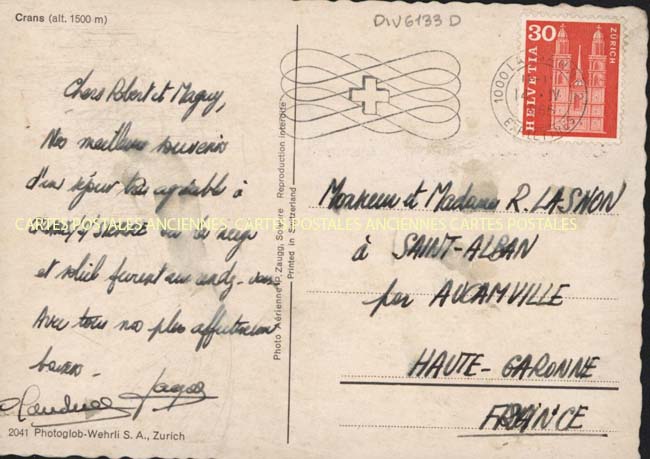 Crans (alt. 1500 m)
DIV6133 D
Chers Robert et Maguy,
Nos meilleurs souvenirs
d'un séjour très agréable à
où la neige
et soleil furent au rendez-vous
Avec tous nos plus affectueux
baisers
2041 Photoglob-Wehrli S. A., Zurich
Photo Aérienne P. Zaugg, Soleure Reproduction interdite
Printed in Switzerland
30
HELVETIA
ZÜRICH
1000 LA
Monsieur et Madame R. LASNON
à SAINT-ALBAN
par AUCAMVILLE
HAUTE-GARONNE
FRANCE
CARTES POSTALES ANCIENNES CARTES POSTALES ANCIENNES, CARTES POSTALES